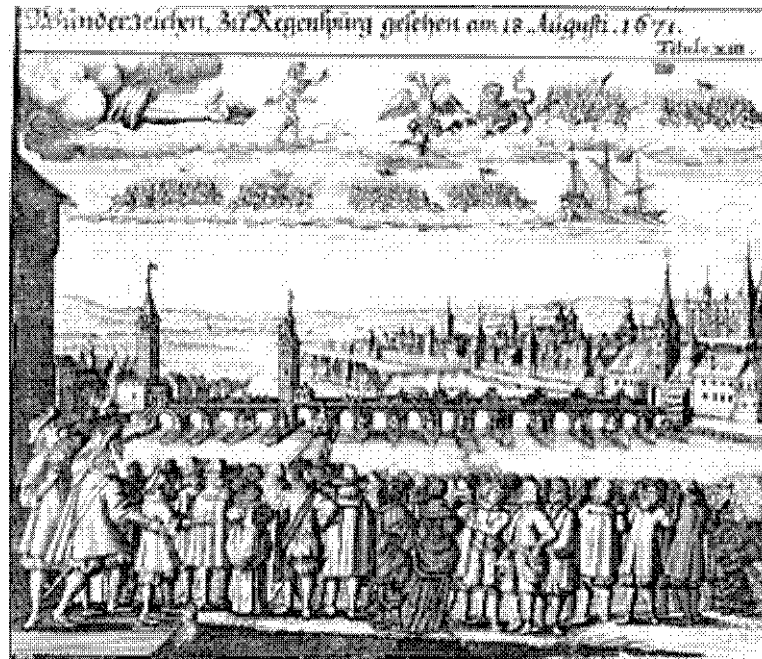 Wunderzeichen, Zu Regenspurg gesehen am 18. Augusti. 1671.
Titulo XIII.